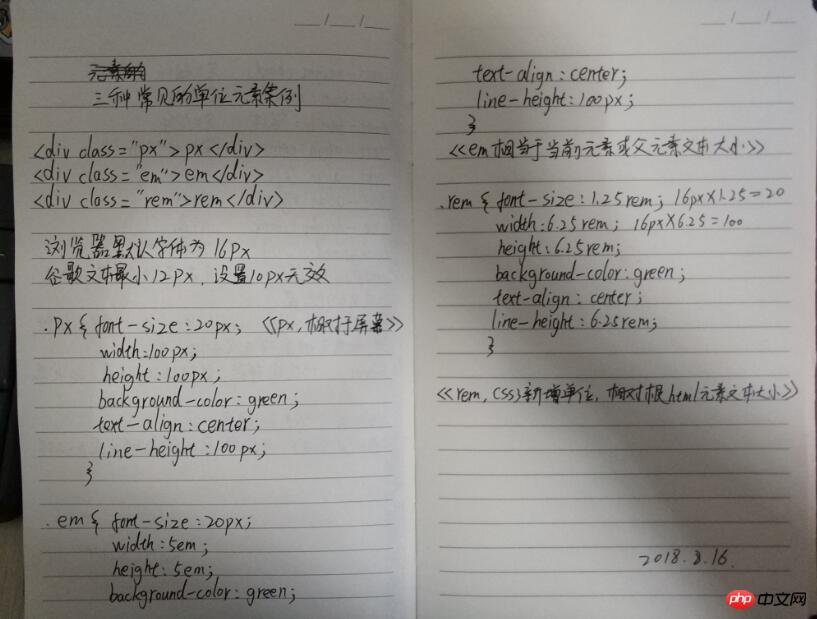 三种常见的单位元素案例
<div class="px">px</div>
<div class="em">em</div>
<div class="rem">rem</div>
浏览器默认字体为16px
谷歌文本最小12px，设置10px无效
.px{ font-size:20px; 《px，相对于屏幕》
width:100px;
height:100px;
background-color:green;
text-align:center;
line-height:100px;
}
.em{ font-size:20px;
width:5em;
height:5em;
background-color:green;
text-align:center;
line-height:100px;
}
《em相当于当前元素或父元素文本大小》
.rem{ font-size:1.25rem; 16px×1.25=20
width:6.25rem; 16px×6.25=100
height:6.25rem;
background-color:green;
text-align:center;
line-height:6.25rem;
}
《rem，CSS3新增单位，相对根html元素文本大小》
2018.8.16
php 中文网